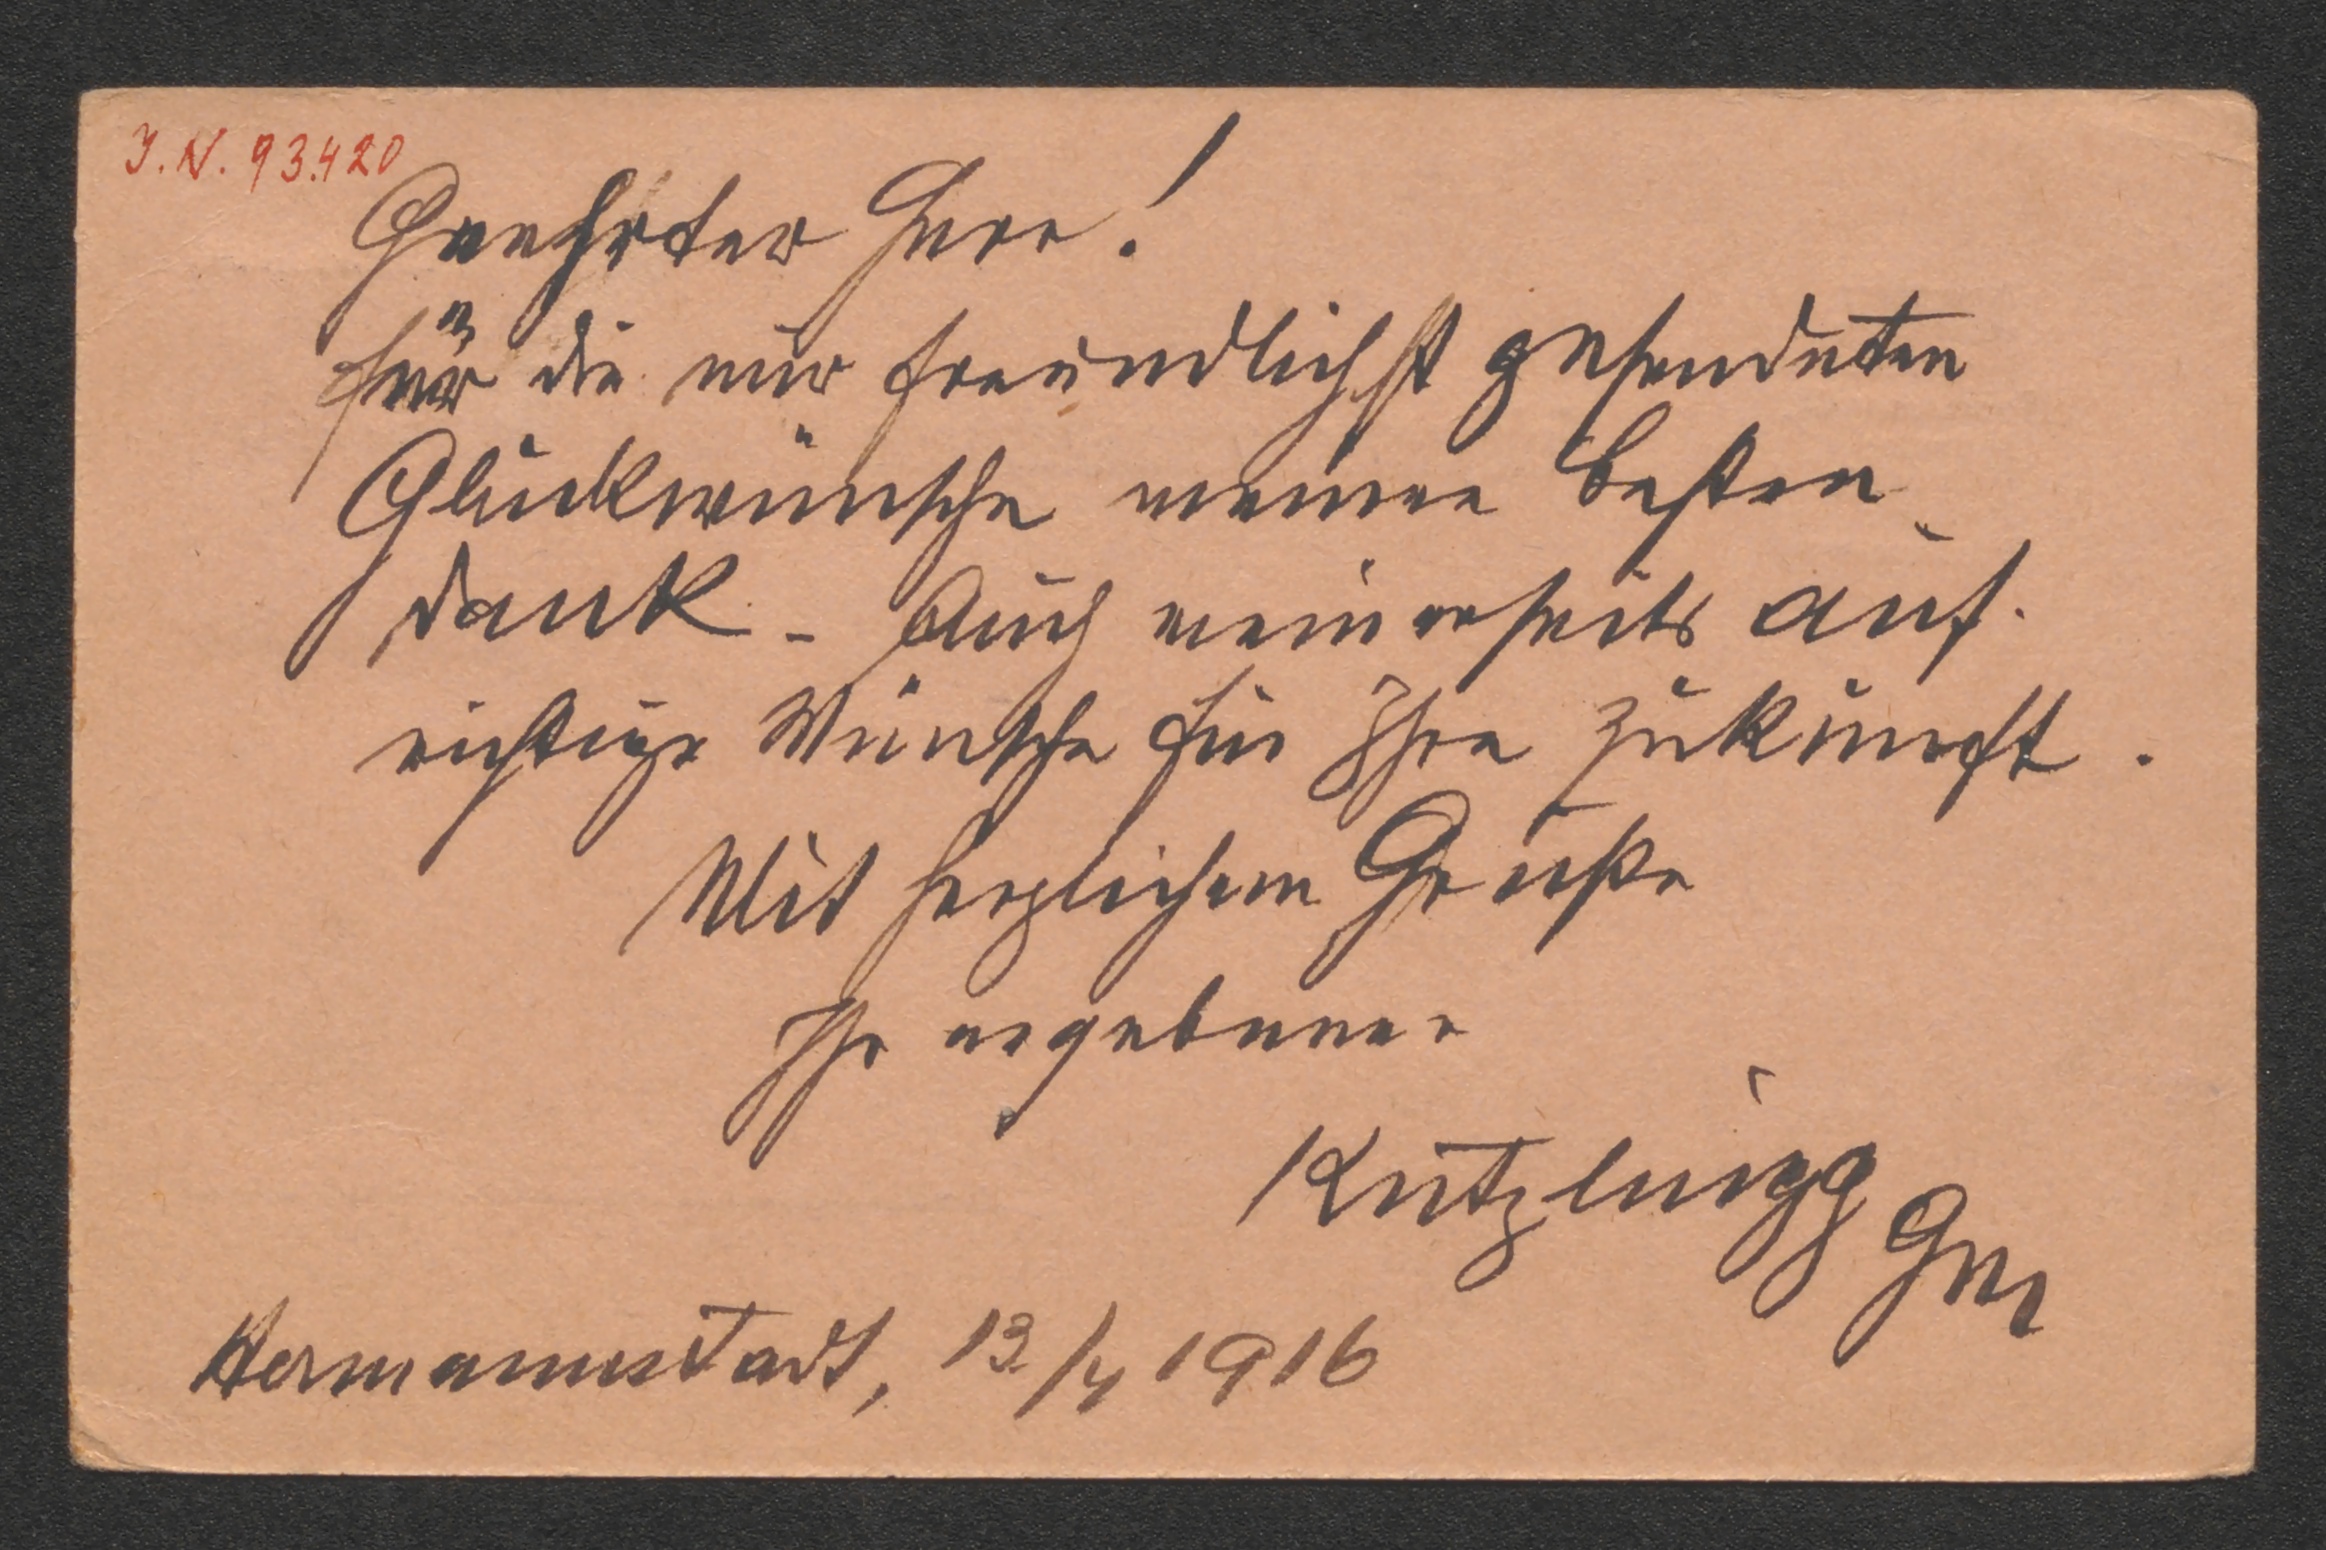 I.N. 93.420
Geehrter Herr!
für die mir freundlichst gesendeten
Glückwünsche meinen besten
Dank. - Auch meinerseits auf-
richtige Wünsche für Ihre Zukunft.
Mit herzlichem Gruße
Ihr ergebener
Kutzlnigg GM
Hermannstadt, 13/4 1916